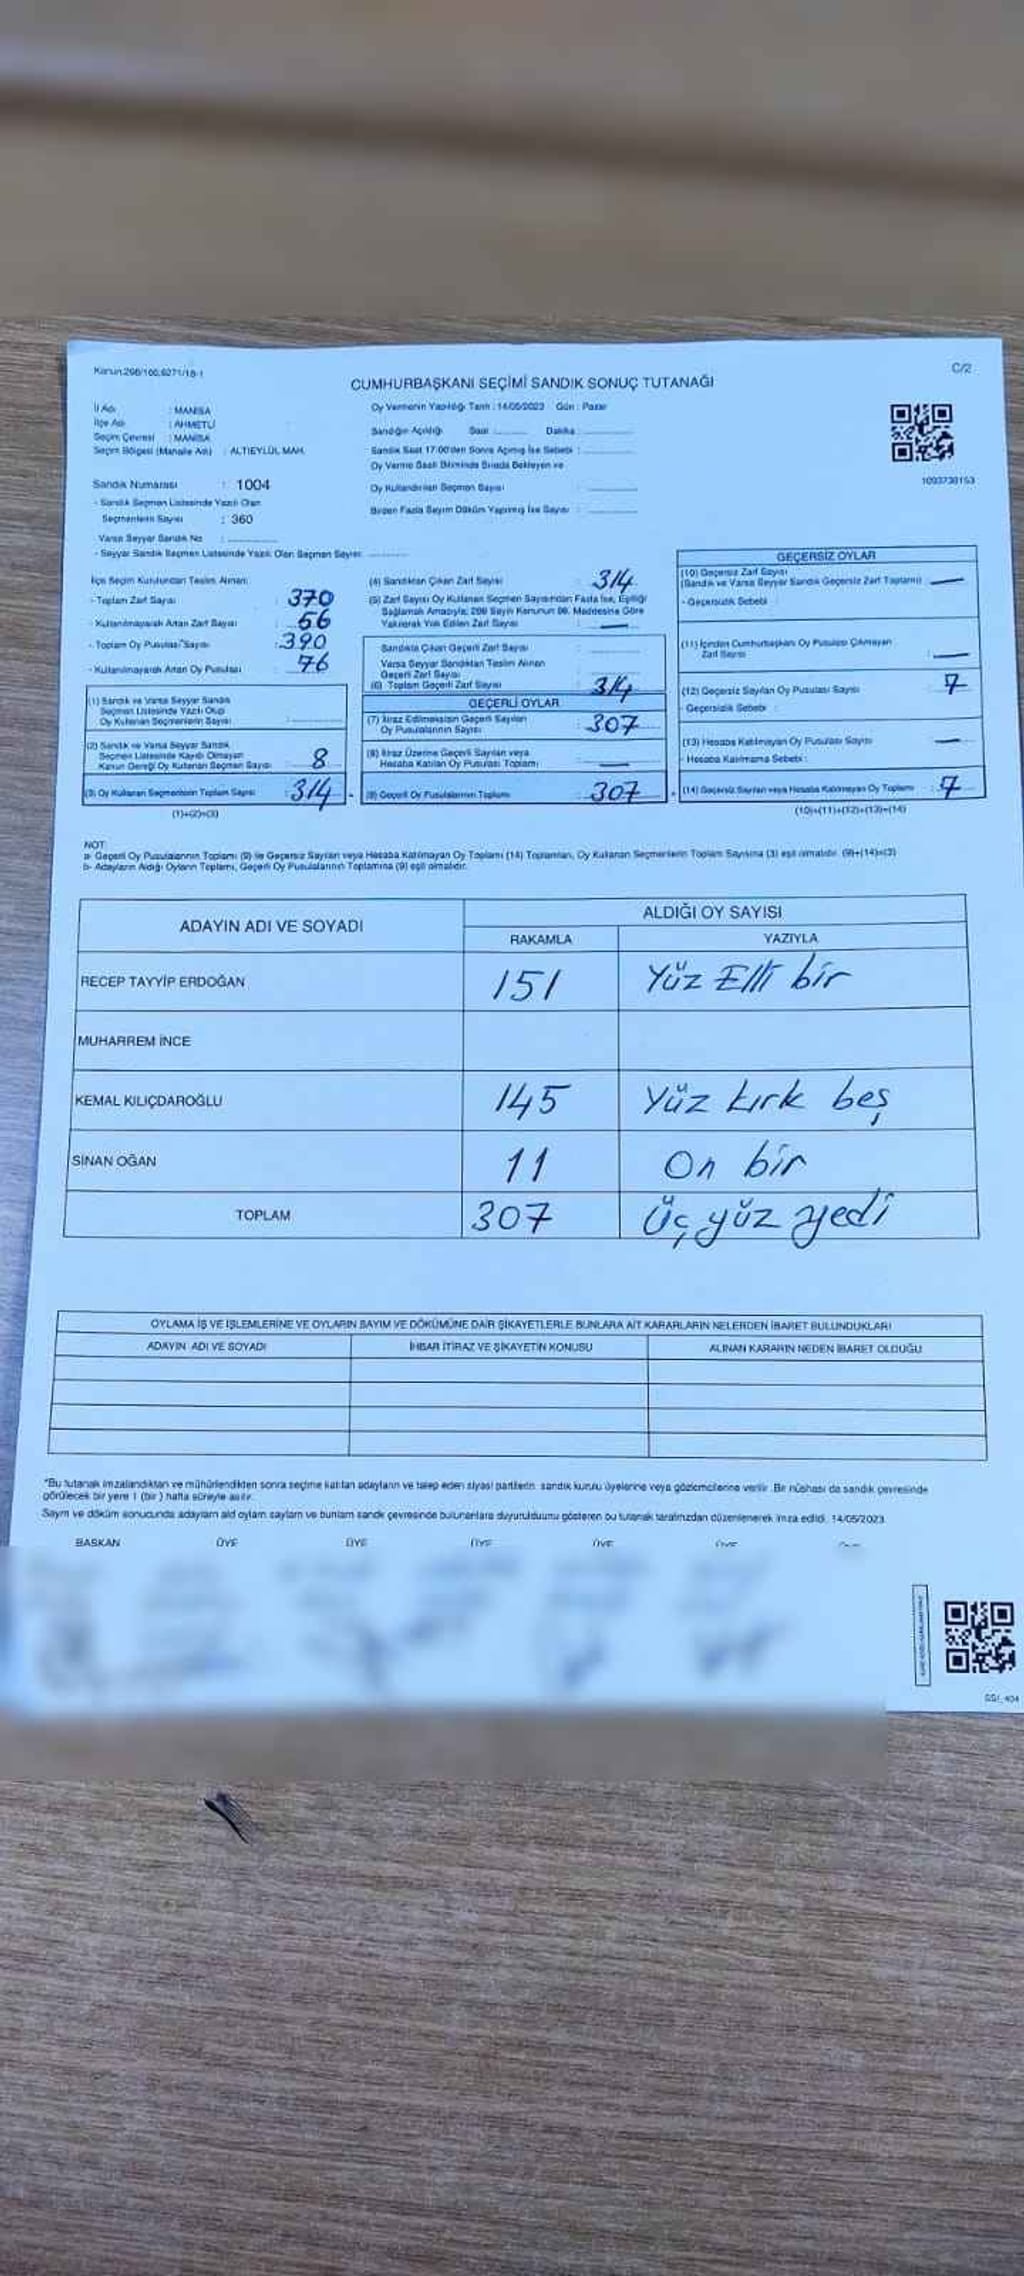 Kanun:298/100,6271/18-1
C/2
CUMHURBAŞKANI SEÇİMİ SANDIK SONUÇ TUTANAĞI
İl Adı : MANİSA
İlçe Adı : AHMETLİ
Seçim Çevresi : MANİSA
Seçim Bölgesi (Mahalle Adı) : ALTIEYLÜL MAH.
Oy Vermenin Yapıldığı Tarih : 14/05/2023 Gün : Pazar
Sandığın Açıldığı Saat Dakika
Sandık Saat 17:00'den Sonra Açılmış İse Sebebi :
Oy Verme Saati Bitiminde Sırada Bekleyen ve
Oy Kullandırılan Seçmen Sayısı :
Birden Fazla Sayım Döküm Yapılmış İse Sayısı :
1093738153
Sandık Numarası : 1004
- Sandık Seçmen Listesinde Yazılı Olan
Seçmenlerin Sayısı : 360
Varsa Seyyar Sandık No :
- Seyyar Sandık Seçmen Listesinde Yazılı Olan Seçmen Sayısı:
İlçe Seçim Kurulundan Teslim Alınan:
- Toplam Zarf Sayısı : 370
- Kullanılmayarak Artan Zarf Sayısı : 56
- Toplam Oy Pusulası Sayısı : 390
- Kullanılmayarak Artan Oy Pusulası : 76
(1) Sandık ve Varsa Seyyar Sandık
Seçmen Listesinde Yazılı Olup
Oy Kullanan Seçmenlerin Sayısı :
(2) Sandık ve Varsa Seyyar Sandık
Seçmen Listesinde Kaydı Olmayan
Kanun Gereği Oy Kullanan Seçmen Sayısı : 8
(3) Oy Kullanan Seçmenlerin Toplam Sayısı : 314
(1)+(2)=(3)
(4) Sandıktan Çıkan Zarf Sayısı : 314
(5) Zarf Sayısı Oy Kullanan Seçmen Sayısından Fazla İse, Eşitliği
Sağlamak Amacıyla; 298 Sayılı Kanunun 98. Maddesine Göre
Yakılarak Yok Edilen Zarf Sayısı : —
Sandıkta Çıkan Geçerli Zarf Sayısı :
Varsa Seyyar Sandıktan Teslim Alınan
Geçerli Zarf Sayısı :
(6) Toplam Geçerli Zarf Sayısı : 314
GEÇERLİ OYLAR
(7) İtiraz Edilmeksizin Geçerli Sayılan
Oy Pusulalarının Sayısı : 307
(8) İtiraz Üzerine Geçerli Sayılan veya
Hesaba Katılan Oy Pusulası Toplamı : —
(9) Geçerli Oy Pusulalarının Toplamı : 307
GEÇERSİZ OYLAR
(10) Geçersiz Zarf Sayısı
(Sandık ve Varsa Seyyar Sandık Geçersiz Zarf Toplamı) : —
- Geçersizlik Sebebi :
(11) İçinden Cumhurbaşkanı Oy Pusulası Çıkmayan
Zarf Sayısı : —
(12) Geçersiz Sayılan Oy Pusulası Sayısı : 7
- Geçersizlik Sebebi :
(13) Hesaba Katılmayan Oy Pusulası Sayısı : —
- Hesaba Katılmama Sebebi :
(14) Geçersiz Sayılan veya Hesaba Katılmayan Oy Toplamı : 7
(10)+(11)+(12)+(13)=(14)
NOT:
a- Geçerli Oy Pusulalarının Toplamı (9) ile Geçersiz Sayılan veya Hesaba Katılmayan Oy Toplamı (14) Toplamları, Oy Kullanan Seçmenlerin Toplam Sayısına (3) eşit olmalıdır. (9)+(14)=(3)
b- Adayların Aldığı Oyların Toplamı, Geçerli Oy Pusulalarının Toplamına (9) eşit olmalıdır.
ADAYIN ADI VE SOYADI
ALDIĞI OY SAYISI
RAKAMLA YAZIYLA
RECEP TAYYİP ERDOĞAN 151 Yüz Elli bir
MUHARREM İNCE
KEMAL KILIÇDAROĞLU 145 Yüz kırk beş
SİNAN OĞAN 11 On bir
TOPLAM 307 Üç yüz yedi
OYLAMA İŞ VE İŞLEMLERİNE VE OYLARIN SAYIM VE DÖKÜMÜNE DAİR ŞİKAYETLERLE BUNLARA AİT KARARLARIN NELERDEN İBARET BULUNDUKLARI
ADAYIN ADI VE SOYADI İHBAR İTİRAZ VE ŞİKAYETİN KONUSU ALINAN KARARIN NEDEN İBARET OLDUĞU
*Bu tutanak imzalandıktan ve mühürlendikten sonra seçime katılan adayların ve talep eden siyasi partilerin sandık kurulu üyelerine veya gözlemcilerine verilir. Bir nüshası da sandık çevresinde
görülecek bir yere 1 (bir) hafta süreyle asılır.
Sayım ve döküm sonucunda adayların aldı oyların sayıların ve bunların sandık çevresinde bulunanlara duyurulduunu gösteren bu tutanak tarafımızdan düzenlenerek imza edildi. 14/05/2023
BAŞKAN ÜYE ÜYE ÜYE ÜYE ÜYE